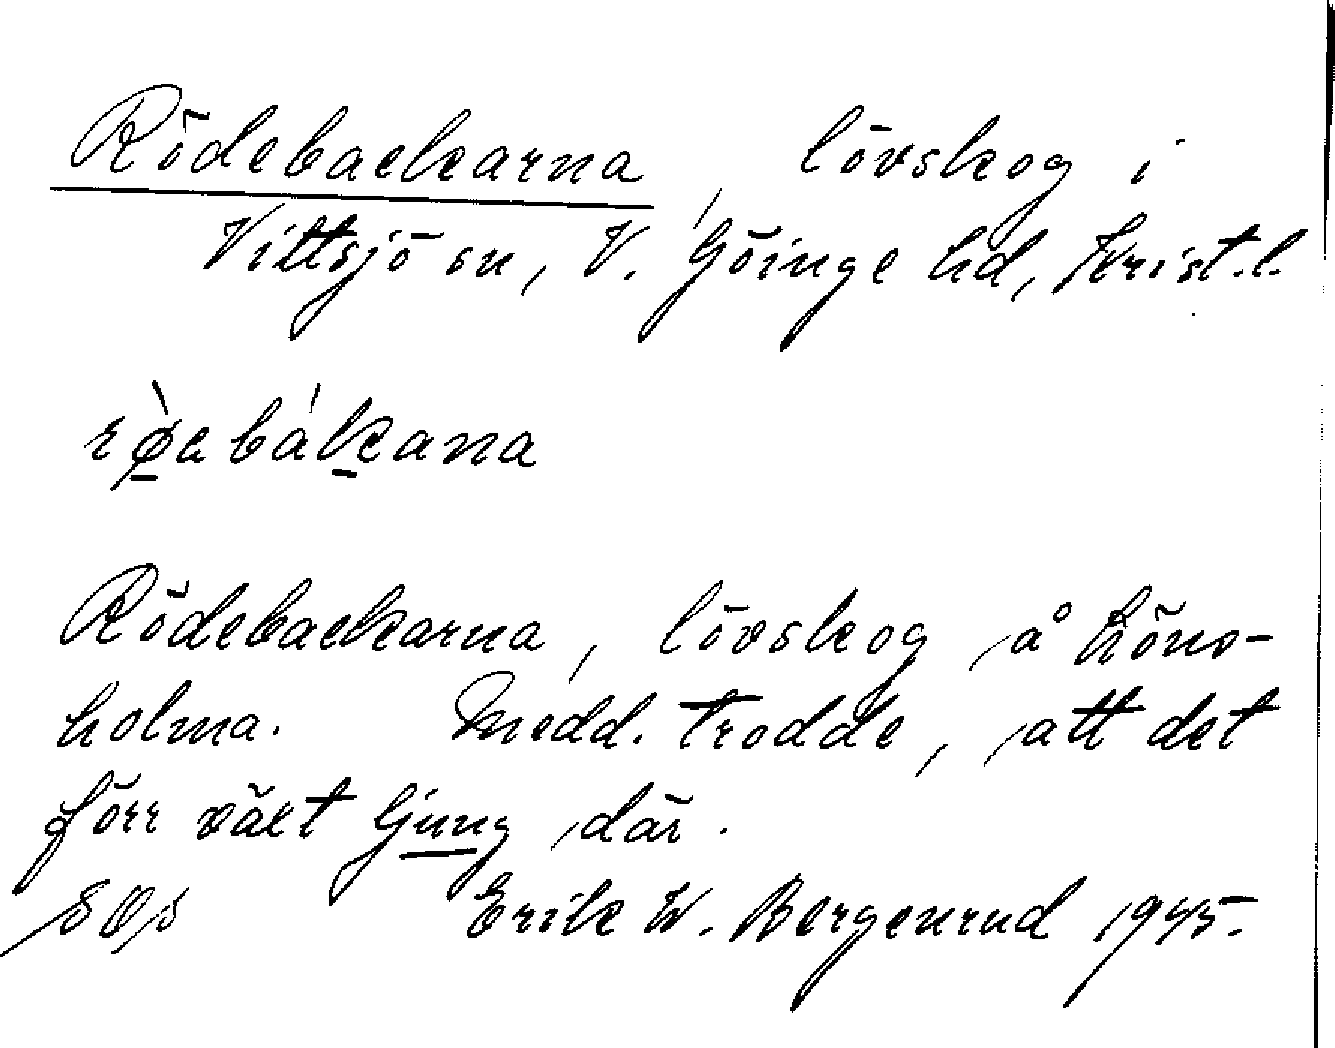 Rödebackarna, lövskog i
Vittsjö sn, V. Göinge hd, Krist. l.
rø̀abákana
Rödebackarna, lövskog å Höns-
holma. Medd. trodde, att det
förr växt ljung där.
Erik W. Bergenrud 1945.